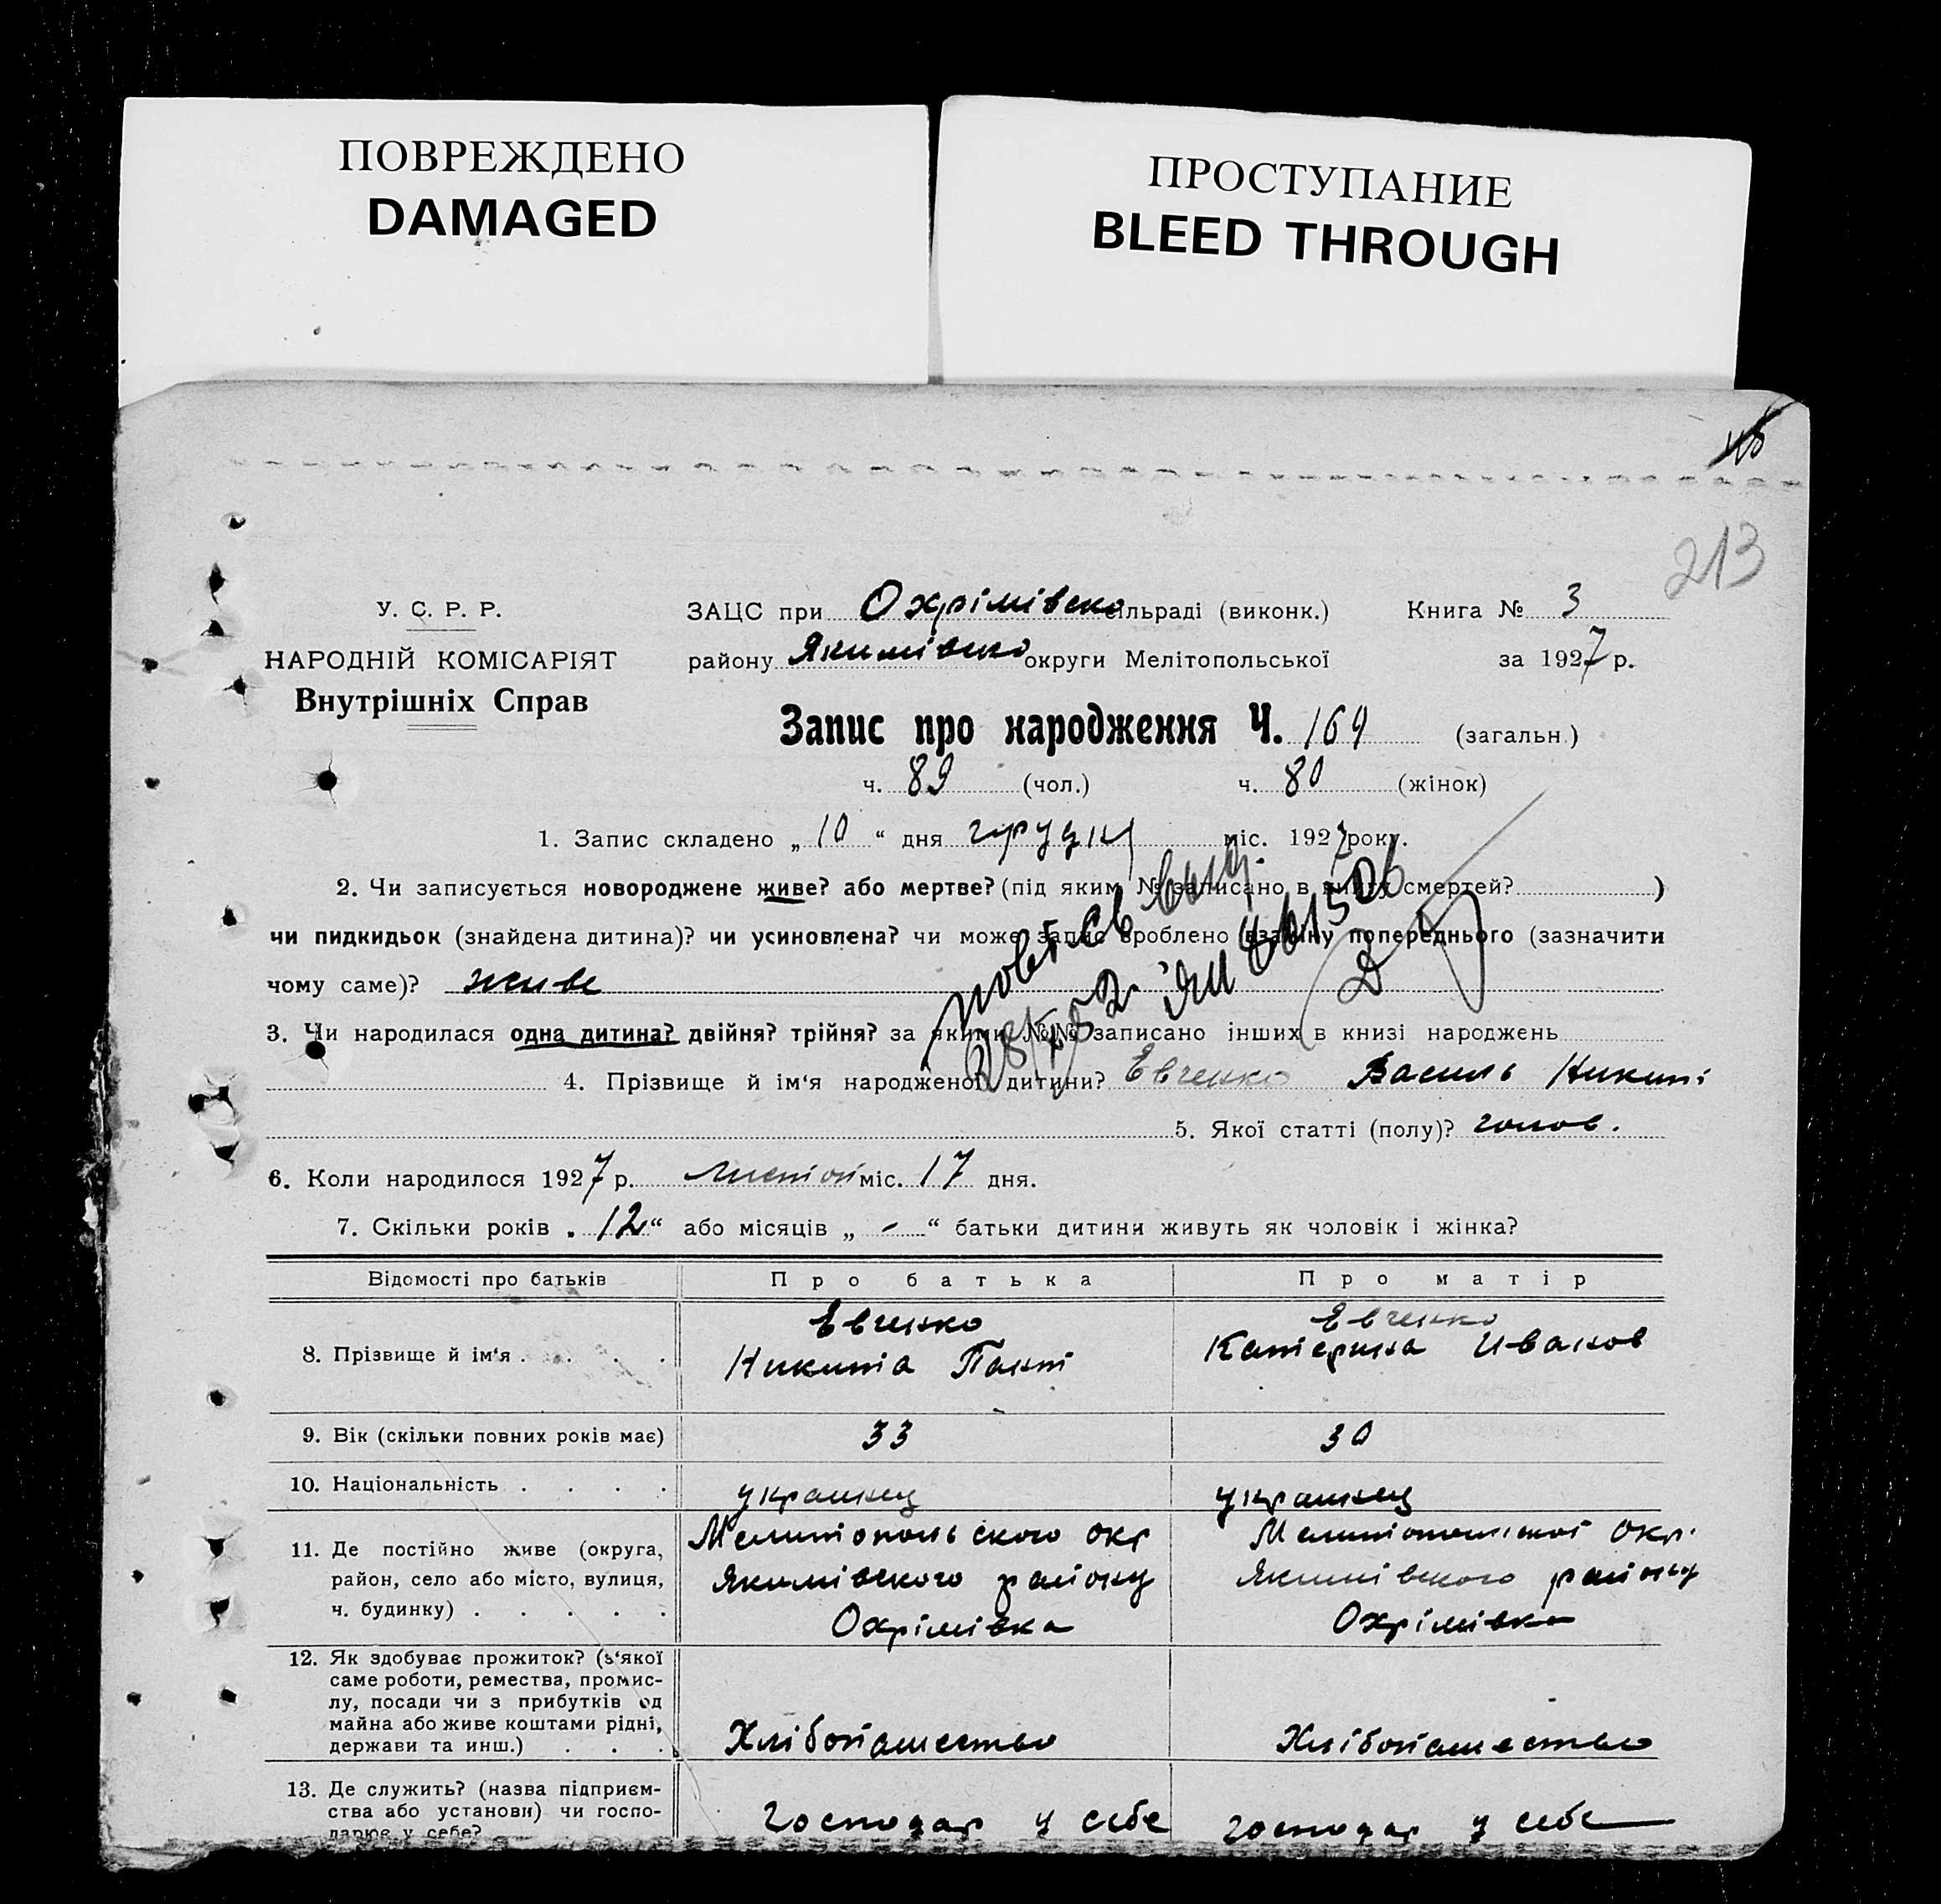 ПОВРЕЖДЕНО
DAMAGED
ПРОСТУПАНИЕ
BLEED THROUGH
213
У. С. Р. Р.
НАРОДНІЙ КОМІСАРІЯТ
Внутрішніх Справ
ЗАЦС при Охрімівско сільраді (виконк.) Книга № 3
району Якимівско округи Мелітопольської за 1927 р.
Запис про народження Ч. 169 (загальн.)
ч. 89 (чол.) ч. 80 (жінок)
1. Запис складено „ 10 “ дня грудня міс. 1927 року.
2. Чи записується новороджене живе? або мертве? (під яким № записано в книгу смертей? )
чи пидкидьок (знайдена дитина)? чи усиновлена? чи може запис зроблено взаміну попереднього (зазначити
чому саме)? живе
3. Чи народилася одна дитина? двійня? трійня? за якими №№ записано інших в книзі народжень
4. Прізвище й ім‘я народженої дитини? Евченко Василь Никит
5. Якої статті (полу)? голов.
6. Коли народилося 1927 р. листоп міс. 17 дня.
7. Скільки років „ 12 “ або місяців „ - “ батьки дитини живуть як чоловік і жінка?
Відомості про батьків Про батька Про матір
8. Прізвище й ім‘я . . . .
Евченко
Никита Пант
Евченко
Катерина Иванов
9. Вік (скільки повних років має) 33 30
10. Національність . . . . украинец украинец
11. Де постійно живе (округа,
район, село або місто, вулиця,
ч. будинку) . . . . .
Мелитопольского окр
Якимівского району
Охрімівка
Мелитопольскої окр.
Якимівского району
Охрімівка
12. Як здобуває прожиток? (з‘якої
саме роботи, ремества, промис-
лу, посади чи з прибутків од
майна або живе коштами рідні,
держави та инш.) . . .
Хлібопашество
Хлібопашество
13. Де служить? (назва підприєм-
ства або установи) чи госпо-
дарює у себе?
господар у себе
господар у себе